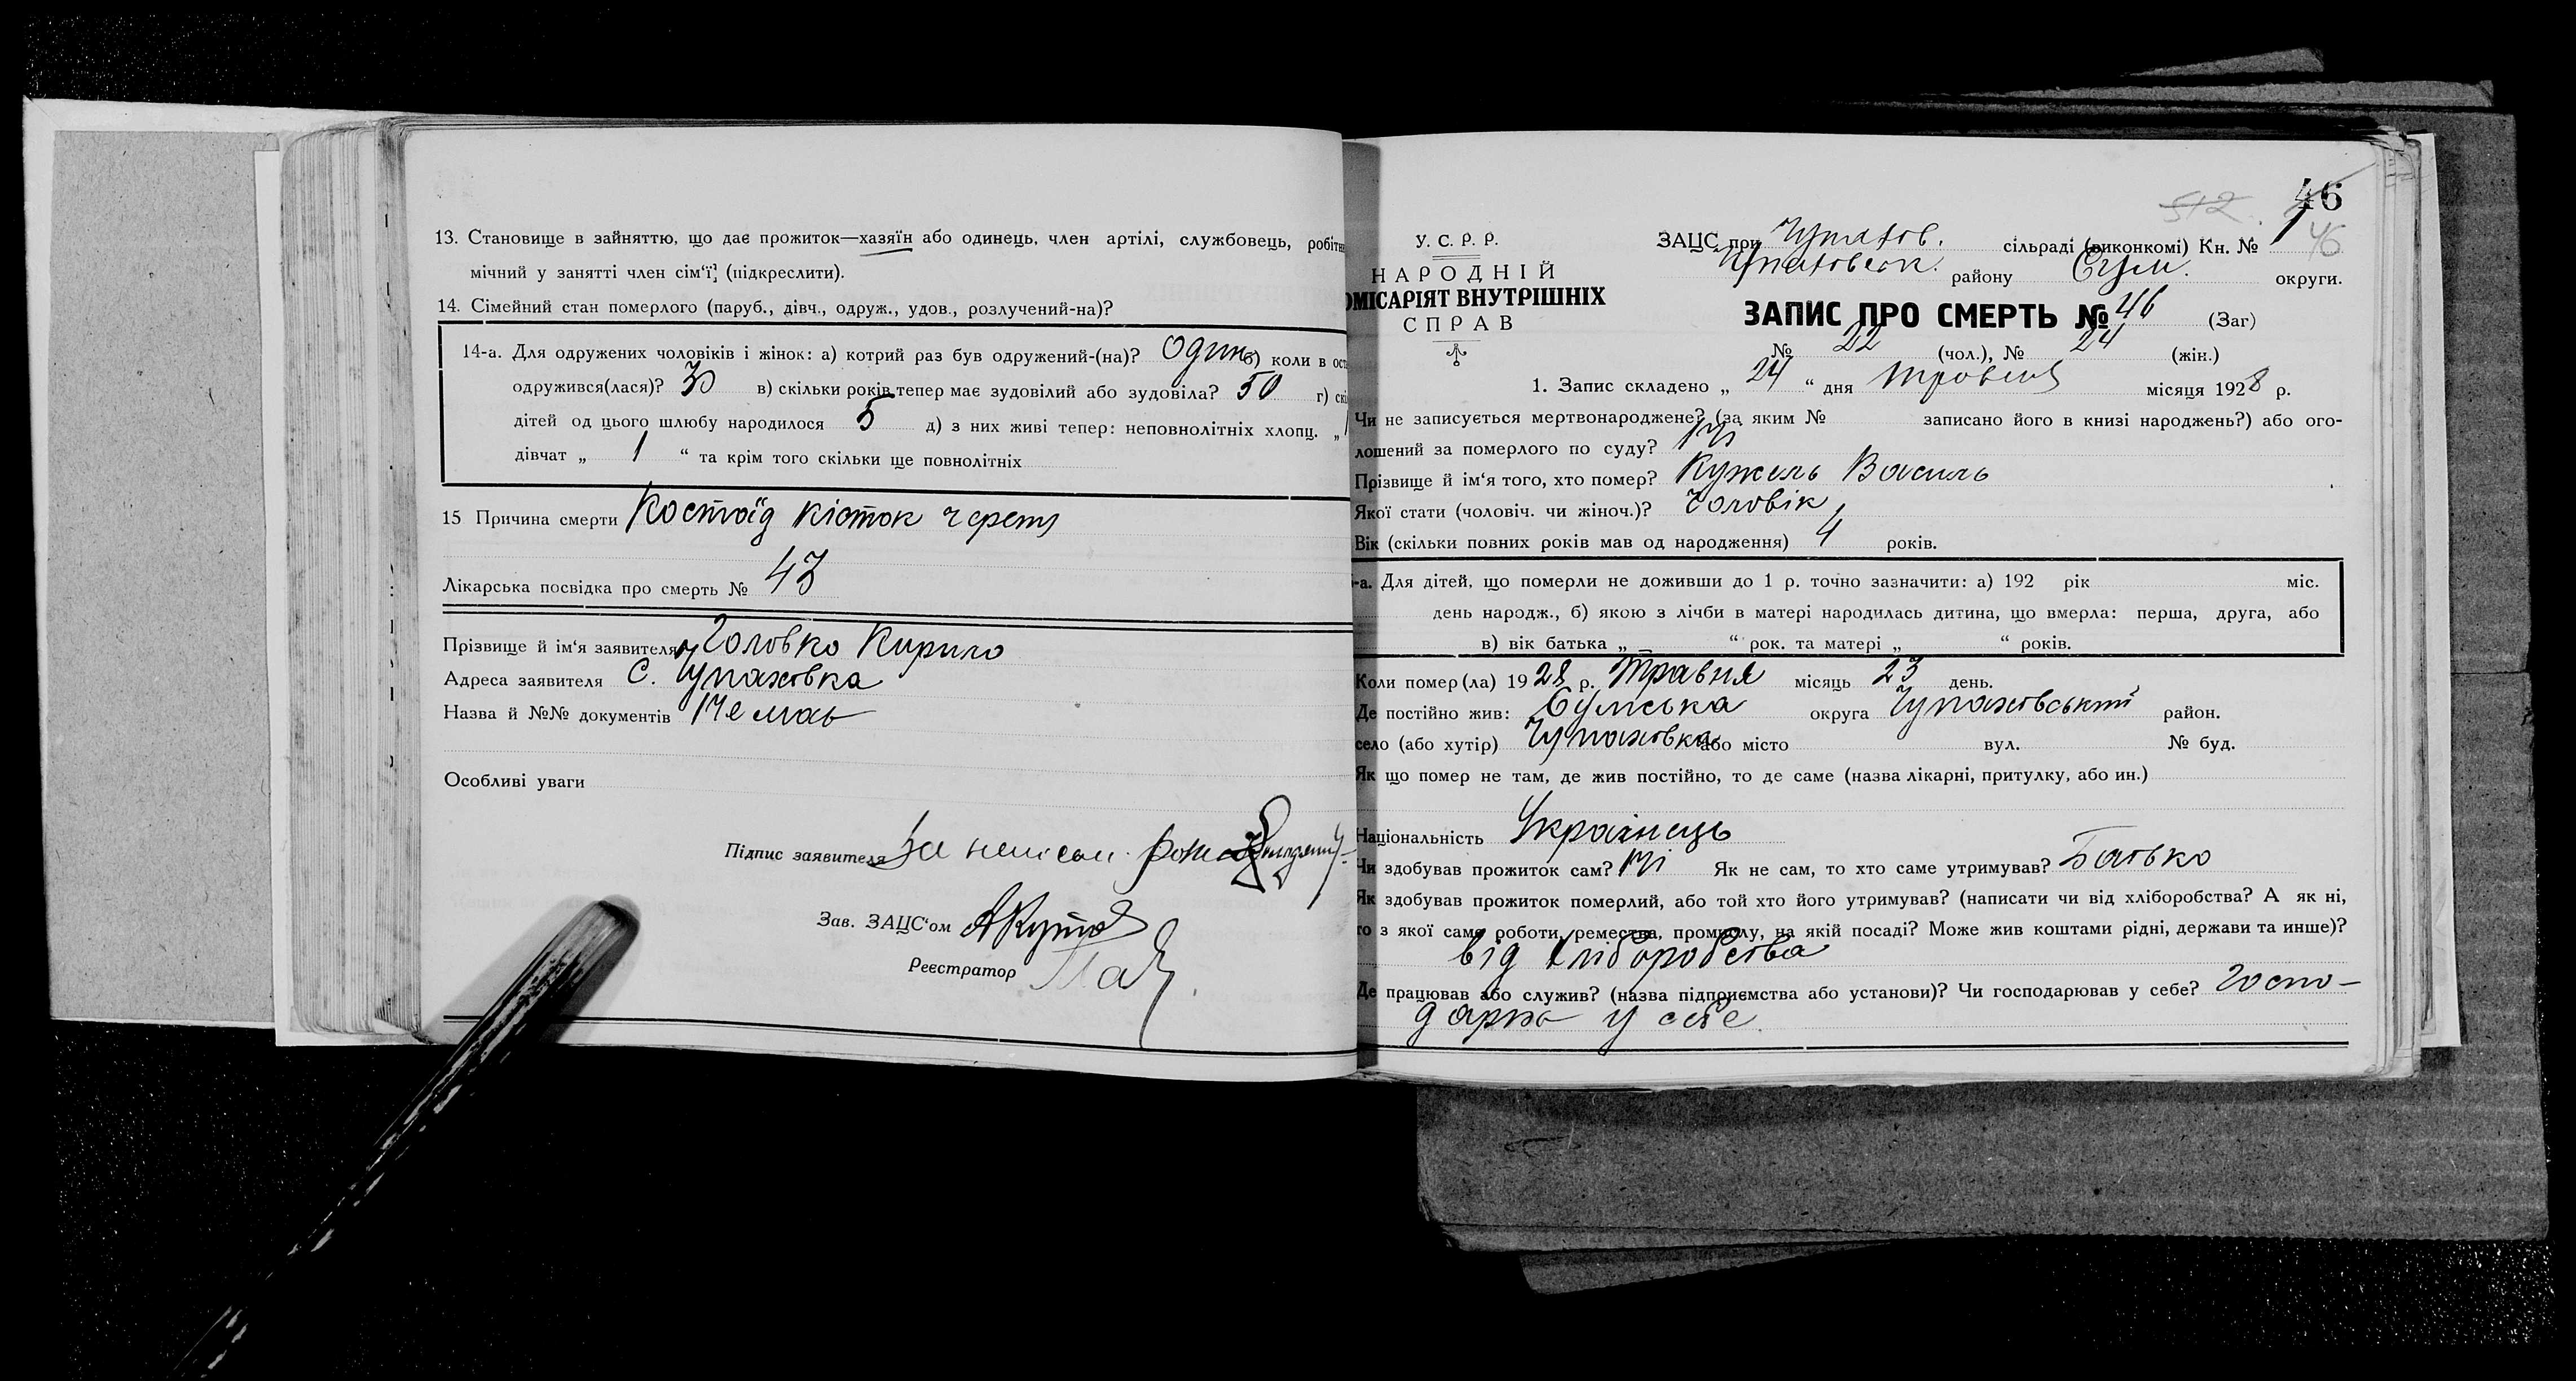 13. Становище в зайняттю, що дає прожиток—хазяїн або одинець, член артілі, службовець, робітн
мічний у занятті член сім'ї, (підкреслити).
14. Сімейний стан померлого (паруб., дівч., одруж., удов., розлучений-на)?
14-а. Для одружених чоловіків і жінок: а) котрий раз був одружений-(на)? Один б) коли в ост
одружився(лася)? 30 в) скільки років тепер має зудовілий або зудовіла? 50 г) скі
дітей од цього шлюбу народилося 5 д) з них живі тепер: неповнолітніх хлопц. „ 1
дівчат „ 1 “ та крім того скільки ще повнолітніх
15 Причина смерти Костоїд кісток черепу
Лікарська посвідка про смерть № 43
Прізвище й ім'я заявителя Головко Кирило
Адреса заявителя С. Чупаховка
Назва й №№ документів Немає
Особливі уваги
Підпис заявителя За
Зав. ЗАЦС'ом
Реєстратор
512 46
46
У. С. Р. Р.
НАРОДНІЙ
ОМІСАРІЯТ ВНУТРІШНІХ
СПРАВ
ЗАЦС при Чупахов. сільраді (виконкомі) Кн. № 1
Чупаховськ. району Сум. округи.
ЗАПИС ПРО СМЕРТЬ № 46 (Заг)
№ 22 (чол.), № 24 (жін.)
1. Запис складено „ 24 “ дня травня місяця 1928 р.
Чи не записується мертвонароджене? (за яким № записано його в книзі народжень?) або ого-
лошений за померлого по суду? Ні
Прізвище й ім'я того, хто помер? Кужель Василь
Якої стати (чоловіч. чи жіноч.)? Чоловік
Вік (скільки повних років мав од народження) 4 років.
-а. Для дітей, що померли не доживши до 1 р. точно зазначити: а) 192 рік міс.
день народж., б) якою з лічби в матері народилась дитина, що вмерла: перша, друга, або
в) вік батька „ – “ рок. та матері „ “ років.
Коли помер(ла) 1928 р. Травня місяць 23 день.
Де постійно жив: Сумська округа Чупаховський район.
село (або хутір) Чупаховка або місто вул. № буд.
Як що помер не там, де жив постійно, то де саме (назва лікарні, притулку, або ин.)
Національність Українець
Чи здобував прожиток сам? Ні Як не сам, то хто саме утримував? Батько
Як здобував прожиток померлий, або той хто його утримував? (написати чи від хліборобства? А як ні,
то з якої саме роботи, ремества, промислу, на якій посаді? Може жив коштами рідні, держави та инше)?
від хліборобства
Де працював або служив? (назва підприємства або установи)? Чи господарював у себе? Госпо-
дарює у себе